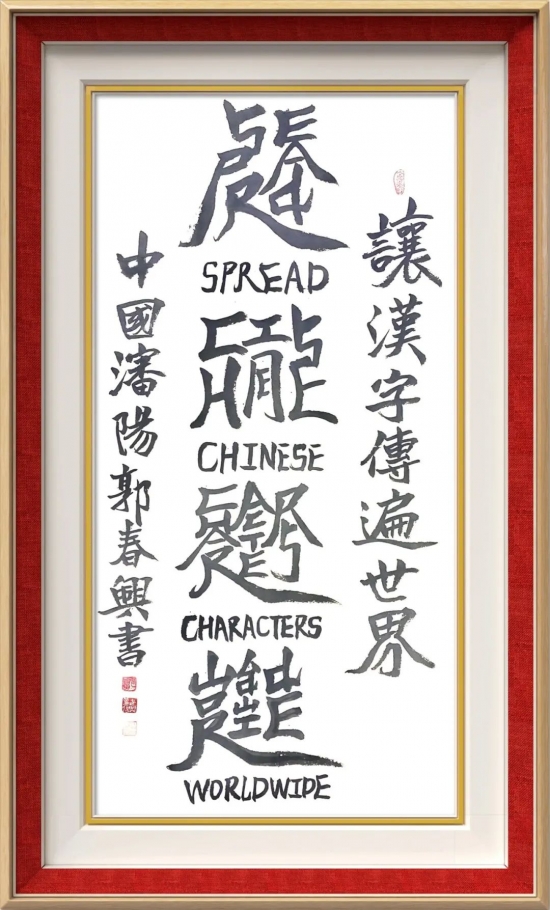 讓漢字傳遍世界
SPREAD
CHINESE
CHARACTERS
WORLDWIDE
中國瀋陽郭春興書